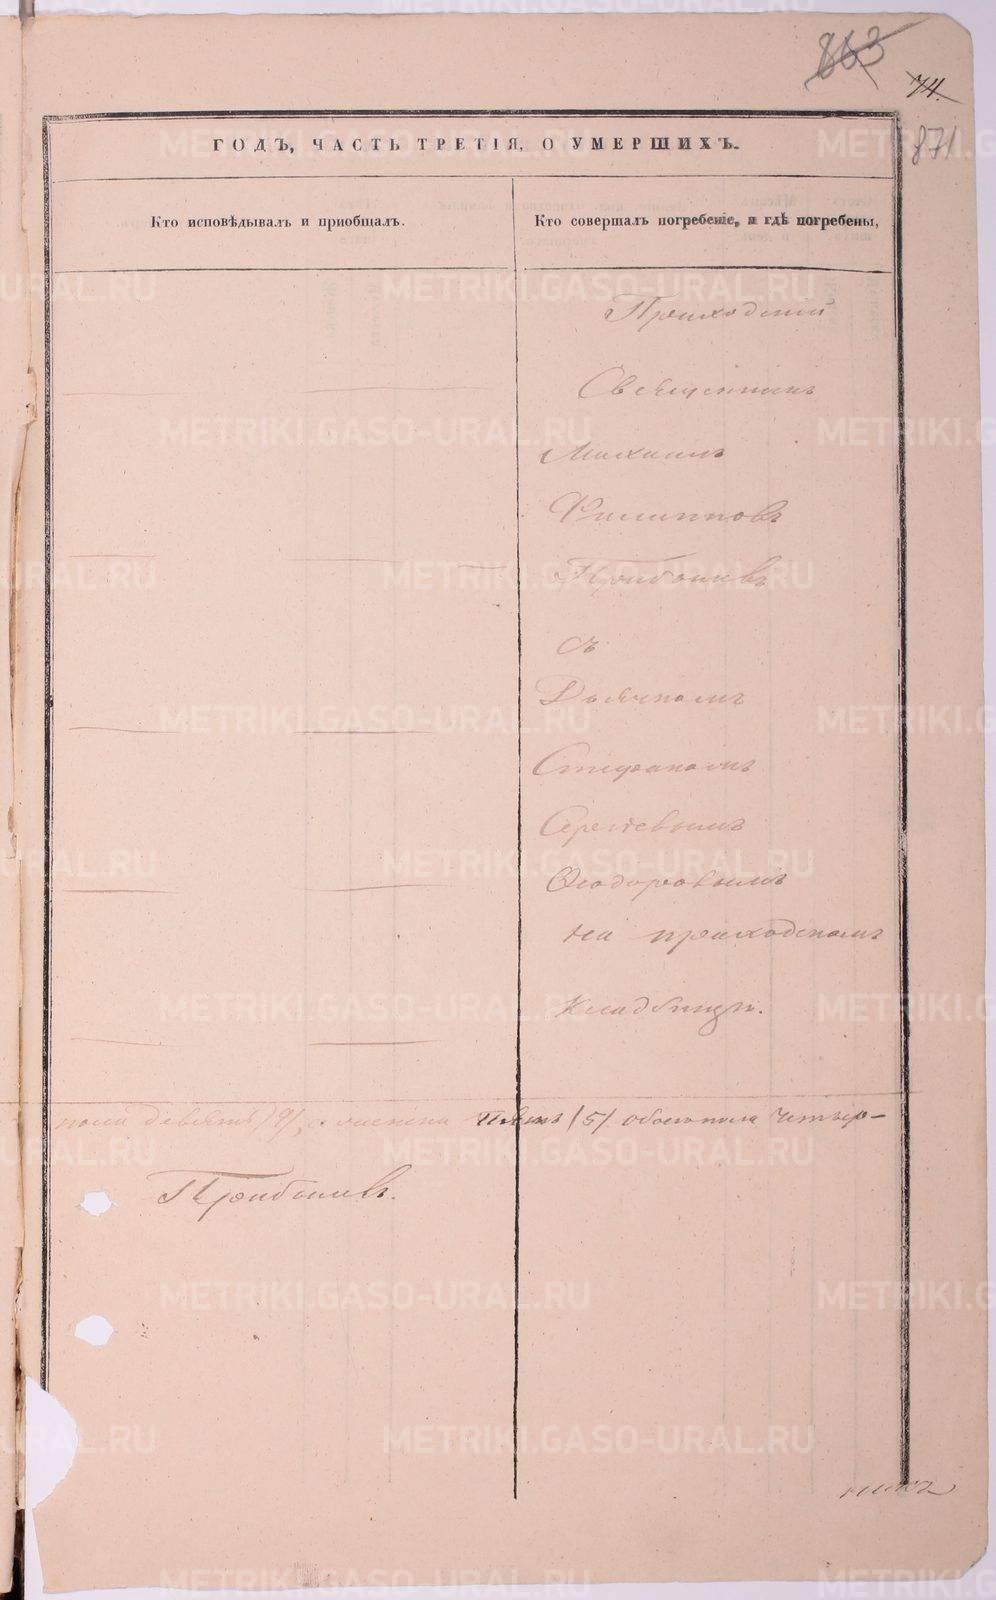 863
74.
871
ГОДЪ, ЧАСТЬ ТРЕТІЯ, О УМЕРШИХЪ.
Кто исповѣдывалъ и пріобщалъ.
Кто совершалъ погребеніе, и гдѣ погребены,
Приходскій
Священникъ
Михаилъ
Филипповъ
Прибылевъ
съ
Дьячкомъ
Стефаномъ
Сергіевымъ
Ѳеодоровымъ
на приходскомъ
кладбищѣ.
пола девять /9/, а женска пять /5/ обоего пола четыр-
Прибылевъ.
METRIKI.GASO-URAL.RU